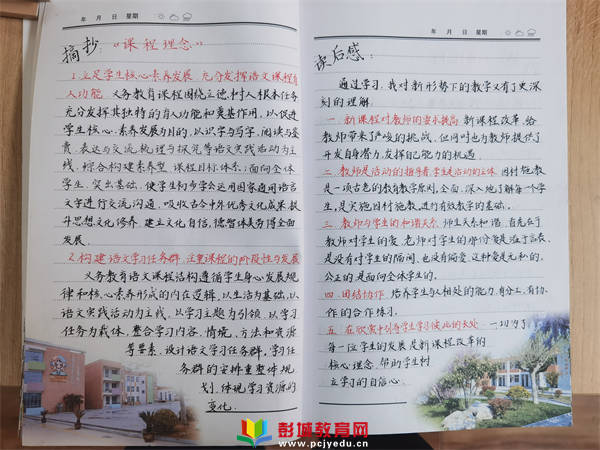 年 月 日 星期
摘抄:“课程理念”
1.立足学生核心素养发展,充分发挥语文课程育
人功能。义务教育课程围绕立德树人根本任务
充分发挥其独特的育人功能和奠基作用,以促进
学生核心素养发展为目的,以识字与写字、阅读与鉴
赏、表达与交流、梳理与探究等语文实践活动为主
线,综合构建素养型课程目标体系;面向全体
学生,突出基础,使学生初步学会运用国家通用语言
文字进行交流沟通,吸收古今中外优秀文化成果,提
升思想文化修养,建立文化自信,德智体美劳得全面
发展。
2.构建语文学习任务群,注重课程的阶段性与发展
义务教育语文课程结构遵循学生身心发展规
律和核心素养形成的内在逻辑,以生活为基础,以
语文实践活动为主线,以学习主题为引领,以学习
任务为载体,整合学习内容、情境、方法和资源
等要素,设计语文学习任务群,学习任
务群的安排重整体规
划,体现学习资源的
变化。
年 月 日 星期
读后感:
通过学习,我对新形势下的教学又有了更深
刻的理解
一、新课程对教师的要求提高 新课程改革,给
教师带来了严峻的挑战,但同时也为教师提供了
开发自身潜力,发挥自己能力的机遇。
二、教师是活动的指导者,学生是活动的主体 因材施教
是一项古老的教育教学原则,全面、深入地了解每一个学
生,是实施因材施教,进行有效教学的基础。
三、教师与学生的和谐关系 师生关系和谐,首先在于
教师对学生的爱,老师对学生的那份爱是溢于言表、
是没有对学生的隔阂、也没有偏爱,这种爱是无私的、
公正的,是面向全体学生的。
四、团结协作 培养学生与人相处的能力,有分工、有协
作的合作练习。
五、在欣赏中引导学生学习彼此的长处
每一位学生的发展是新课程改革的
核心理念,帮助学生树
立学习的自信心。
彭城教育网
www.pcjyedu.cn